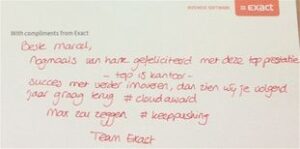 BUSINESS SOFTWARE = EXACT
With compliments from Exact
Beste Marcel,
Nogmaals van harte gefeliciteerd met deze topprestatie
- top 15 kantoor -
succes met verder innoveren, dan zien wij je volgend
jaar graag terug # cloudaward
Max zou zeggen # keeppushing
Team Exact